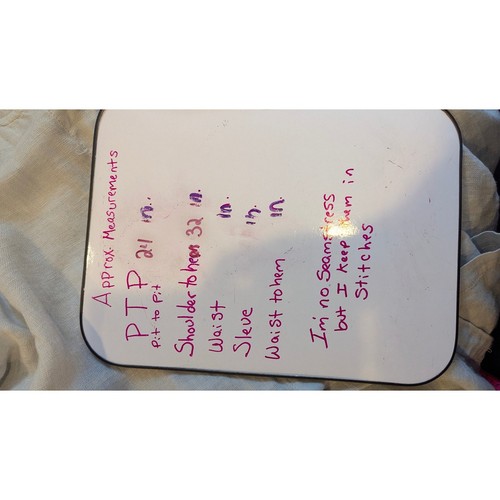 Approx. Measurements
PTP 24 in.
Pit to Pit
Shoulder to hem 32 in.
Waist in.
Sleve in.
Waist to hem in.
I'm no Seamstress
but I keep them in
Stitches